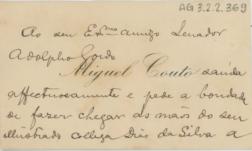 AG 3.2.2.369
Ao seu Exmo amigo Senador
Adolpho Gordo
Miguel Couto saúda
affectuosamente e pede a bondade
de fazer chegar ás mãos do seu
illustrado collega Dias da Silva a